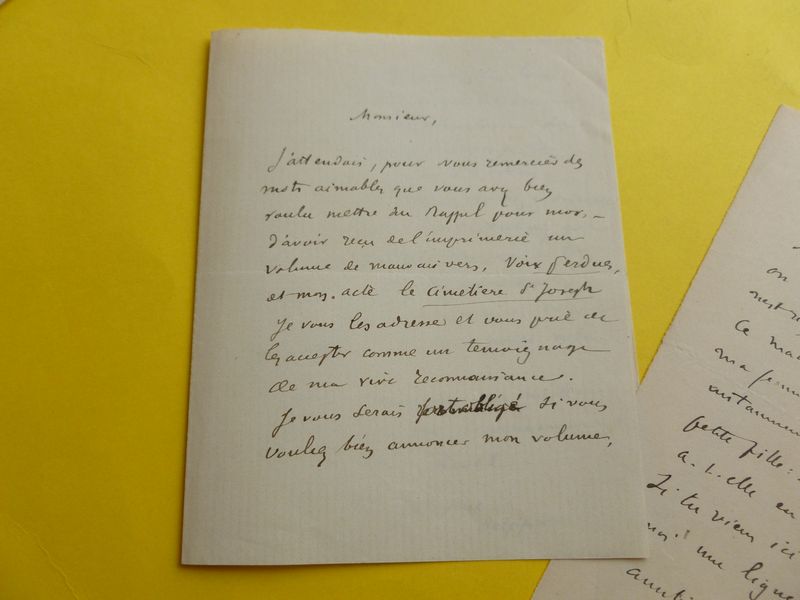 Monsieur,
J'attendais, pour vous remercier des
mots aimables que vous avez bien
voulu mettre au Rappel pour moi, –
d'avoir reçu de l'imprimerie un
volume de mauvais vers, Voix perdues,
et mon acte le cimetière St Joseph
Je vous les adresse et vous prie de
les accepter comme un temoignage
de ma vive reconnaissance.
Je vous serais si vous
voulez bien annoncer mon volume,
on
Ce
ma
petite fille :
a-t-elle en
Si tu viens ici
une ligne